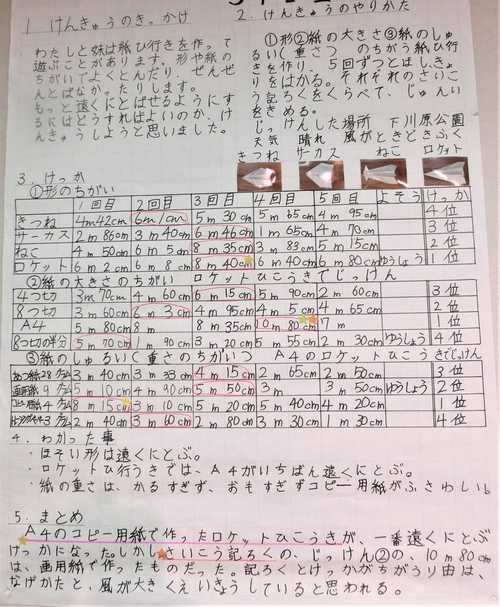 1. けんきゅうのき。かけ
わたしと妹は紙ひ行きを作って
遊ぶことがあります。形や紙の
ちがいでよくとんだり、ぜんぜ
んとばなか。たりします。
もっと遠くにとばせるようにす
るにはどうすればよいのか、け
んきゅうしようと思いました。
2. けんきゅうのやりかた
①形②紙の大きさ③紙のしゅ
るい(重さ)のちがう紙ひ行
きを作り、5回ずつとばしき
りをはかる。それぞれのさいこ
う記ろくをくらべて、じゅんい
をきめる。
じっけんした場所 下川原公園
天気 晴れ 風がときどきふく
きつね サーカス ねこ ロケット
3. けっか
①形のちがい
1回目 2回目 3回目 4回目 5回目 よそう けっか
きつね 4m42cm 6m1cm 5m30cm 5m65cm 4m95cm 4位
サーカス 2m86cm 3m40cm 6m46cm 1m65cm 4m70cm 3位
ねこ 4m50cm 6m5cm 8m35cm 3m83cm 5m15cm 2位
ロケット 6m2cm 6m8cm 8m40cm 6m40cm 6m80cm ゆうしょう 1位
②紙の大きさのちがい ロケットひこうきでじっけん
4つ切 3m70cm 4m60cm 6m15cm 5m90cm 2m60cm 3位
8つ切 3m60cm 6m3cm 4m95cm 4m5cm 2m40cm 2位
A4 5m80cm 8m 8m35cm 10m80cm 7m 1位
8つ切の半分 5m70cm 1m90cm 3m20cm 5m55cm 2m30cm ゆうしょう 4位
③紙のしゅるい(重さのちがい) A4のロケットひこうきでじっけん
紙28グラム 3m40cm 3m33cm 4m15cm 2m65cm 2m50cm 3位
画用紙9グラム 5m10cm 4m90cm 5m50cm 3m 3m50cm ゆうしょう 2位
コピー用紙4グラム 8m15cm 3m10cm 5m20cm 5m40cm 4m20cm 1位
2m40cm 3m60cm 2m80cm 3m30cm 1m30cm 4位
4. わかった事
・ほそい形は遠くにとぶ。
・ロケットひ行うきでは、A4がいちばん遠くにとぶ。
・紙の重さは、かるすぎず、おもすぎずコピー用紙がふさわしい。
5. まとめ
A4のコピー用紙で作ったロケットひこうきが、一番遠くにとぶ
けっかになった。しかしさいこう記ろくの、じっけん②の、10m80cm
は、画用紙で作ったものだった。記ろくとけっかがちがうり由は、
なげかたと、風が大きくえいきょうしていると思われる。